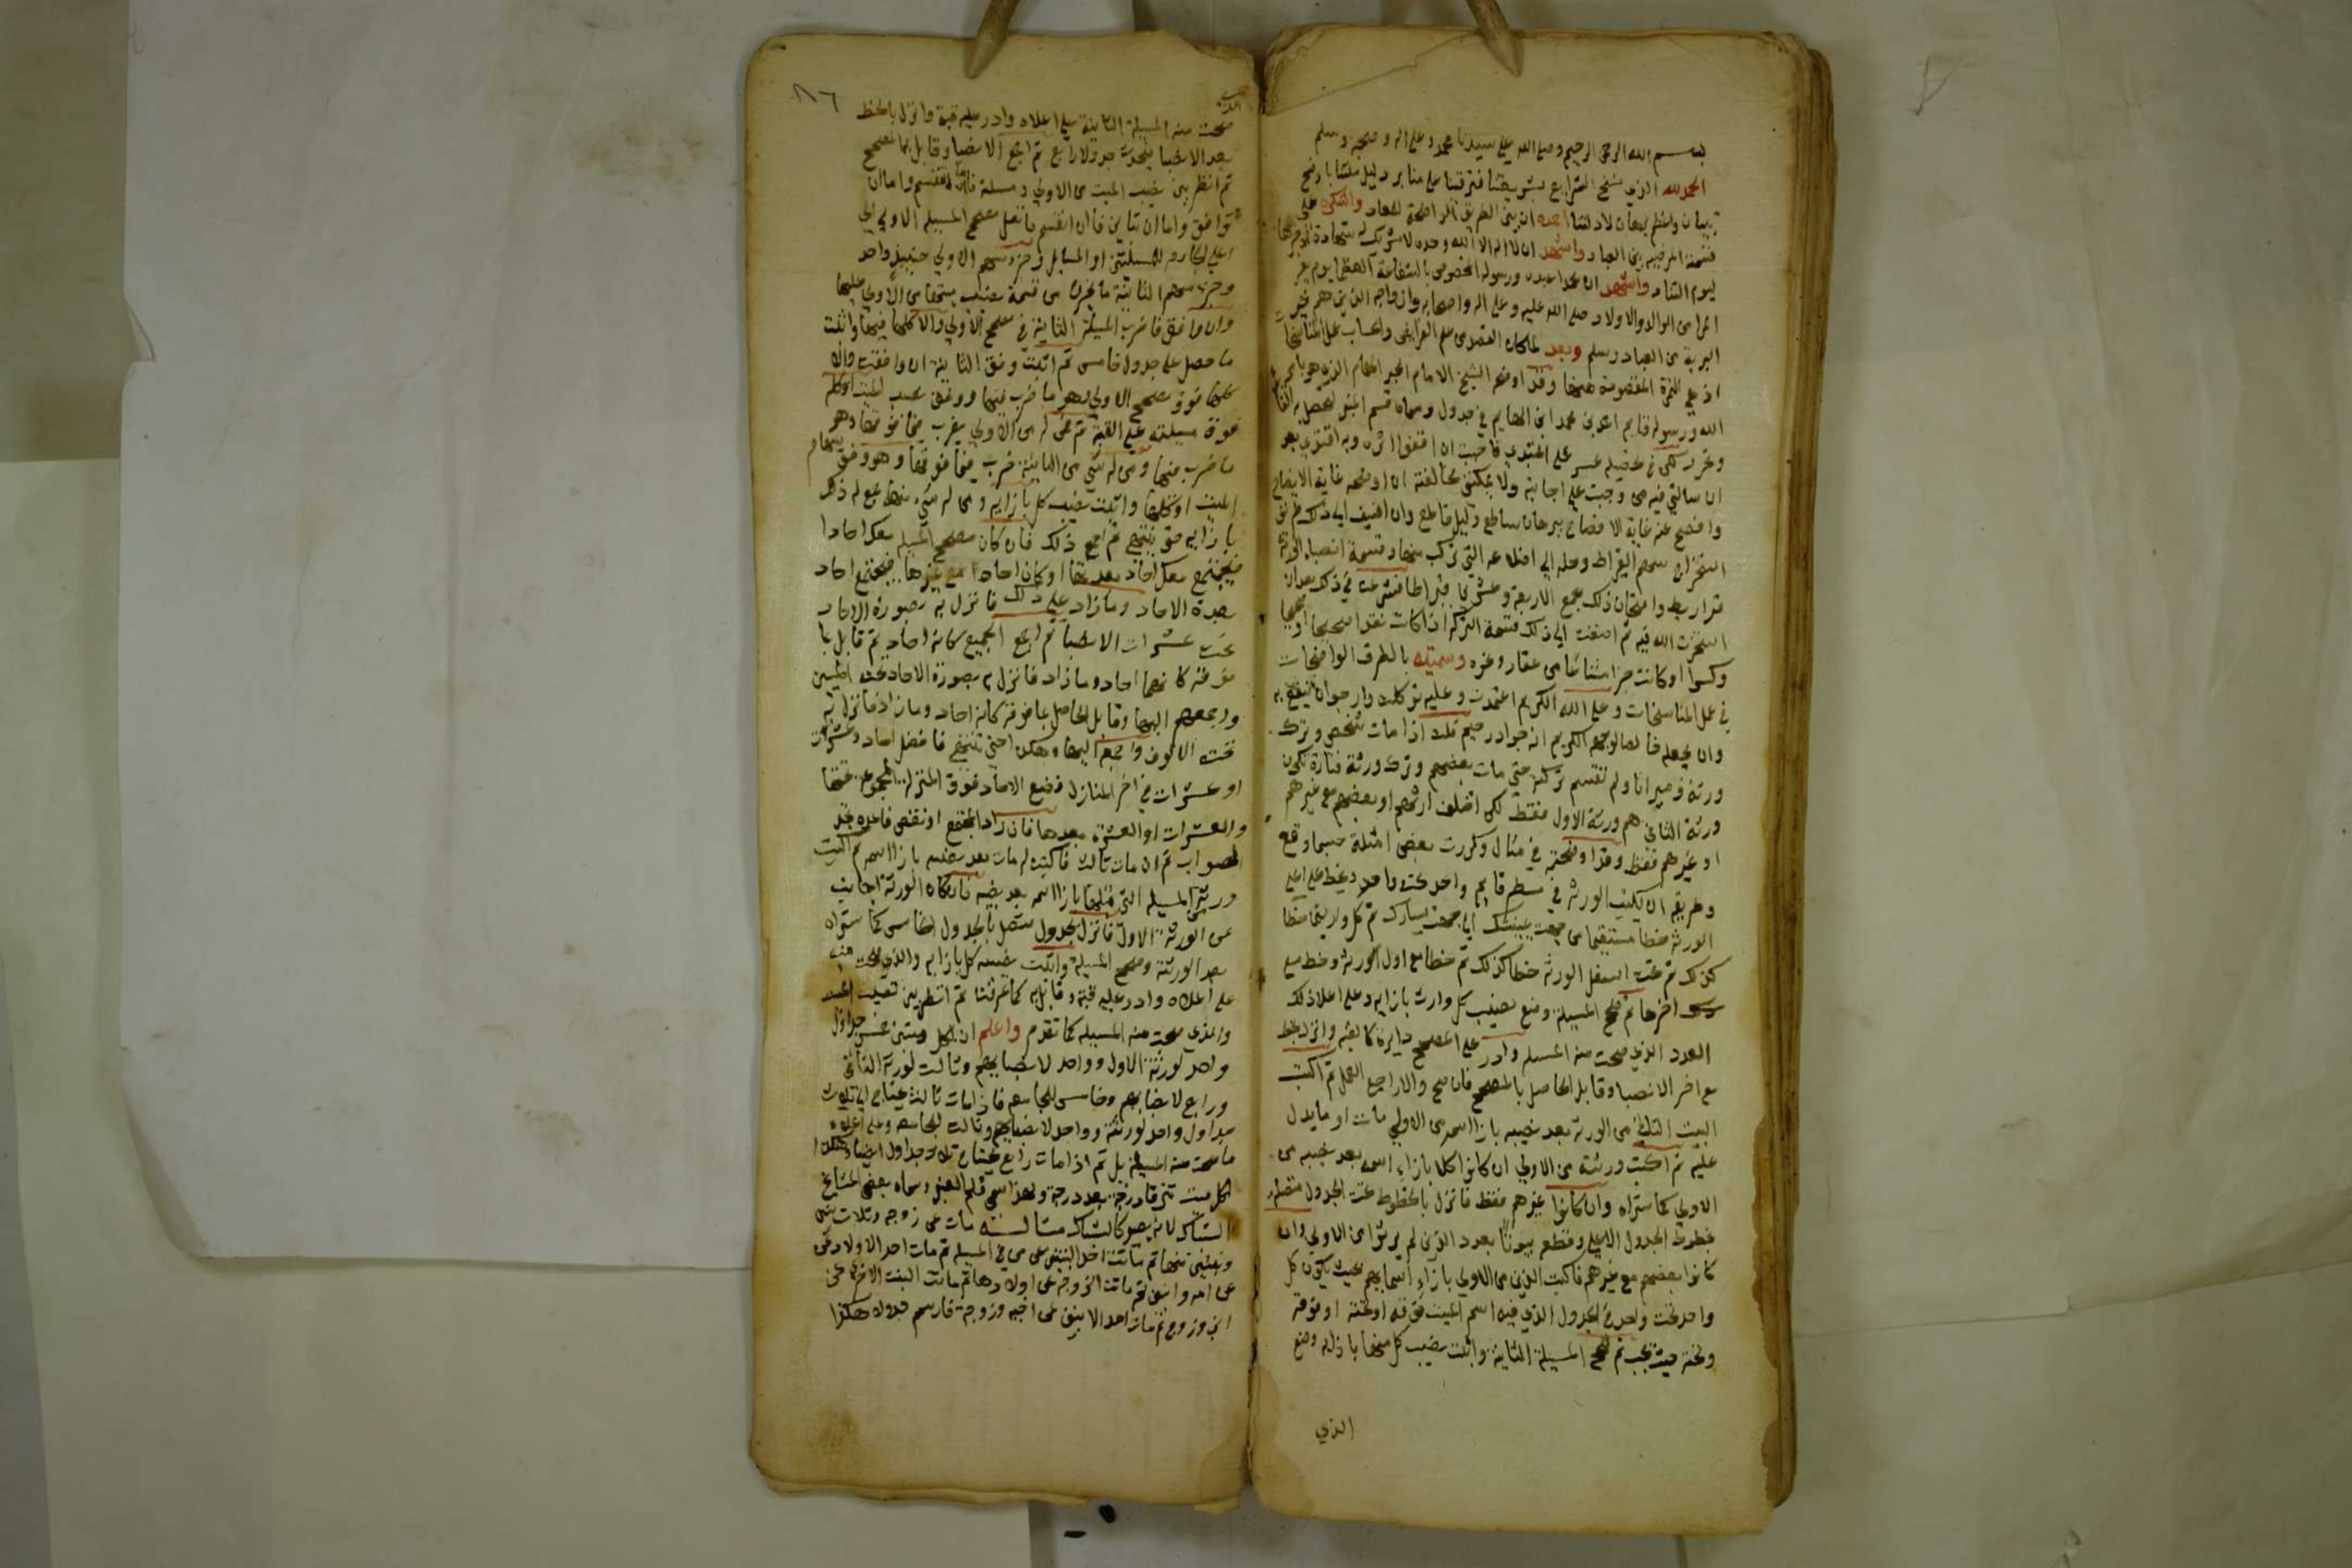 بسم الله الرحمن الرحيم وصلى الله على سيدنا محمد وعلى اله وصحبه وسلم
الحمد لله الذي نسخ الشرايع بشريعتنا
احمده ان بين الطريق الواضحة للعباد واشكره على
قسمته المرضية بين العباد واشهد ان لا اله الا الله وحده لا شريك له شهادة
ليوم التناد واشهد ان محمدا عبده ورسوله المخصوص بالشفاعة العظما يوم يفر
المرء من الوالد والاولاد صلى الله عليه وعلى اله واصحابه وازواجه الذين هم خير
البرية من العباد وسلم وبعد لما كان القصد من علم الفرايض والحساب عمل المناسخات
اذ هي الثمرة المقصودة منها وقد اوضح الشيخ الامام الحبر الهمام الذي هو بامر
الله ورسوله قايم احمد بن محمد ابن الهايم في جدول وسماه قسم
على المبتدي فاحببت ان اقتفي اثره وبه اقتدي بعد
ان سالني فيه من وجبت علي اجابته ولا يمكنني مخالفته ان اوضحه غاية الايضاح
وافصح عنه غاية الافصاح ببرهان ساطع ودليل قاطع وان اضيف الى ذلك طريق
استخراج سهم القيراط وحله الى اضلاعه التي تركب منها وقسمة انصباء الورثة
قراريط وامتحان ذلك بجمع الاربعة وعشرين قيراطا فشرعت في ذلك بعد ان
استخرت الله فيه ثم اضفت الى ذلك قسمة التركة اذا كانت نقدا صحيحا او صحيحا
وكسرا او كانت جزا مشاعا من عقار وغيره وسميته بالطرق الواضحات
في عمل المناسخات وعلى الله الكريم اعتمدت وعليه توكلت وارجو ان ينفع به
وان يجعله خالصا لوجهه الكريم انه جواد رحيم قلت اذا مات شخص وترك
ورثة وميراثا ولم تقسم تركته حتى مات بعضهم وترك ورثة فتارة تكون
ورثة الثاني هم ورثة الاول فقط لكن اختلف ارثهم او بعضهم مع غيرهم
او غيرهم فقط وقد اوضحته في مثال وكررت بعض امثلة حسبما وقع
وطريقه ان تكتب الورثة في سطر قايم واحد تحت واحد وتخط على اعلى
الورثة خطا مستقيما من جهة يمينك الى جهة يسارك ثم كل وارث خطا
كذلك ثم تحت اسفل الورثة خطا كذلك ثم خطا مع اول الورثة وخط مع
اخرها ثم صحح المسيلة وضع نصيب كل وارث بازايه وعلى اعلا ذلك
العدد الذي صحت منه المسيلة وادر على المصحح دايرة كالقبة وانزل بخط
مع اخر الانصبا وقابل الحاصل بالمصحح فان صح والا راجع العمل ثم اكتب
الميت الثاني من الورثة بعد نصيبه بازا اسمه من الاولى مات او ما يدل
عليه ثم اكتب ورثته من الاولى ان كانوا كلا بازاء اسمه بعد نصيبه من
الاولى كما ستراه وان كانوا غيرهم فقط فانزل بالخطوط تحت الجدول متصلة
بخطوط الجدول الاعلى وقطع بيوتا بعدد الذين لم يرثوا من الاولى وان
كانوا بعضهم مع غيرهم فاكتب الذين من الاولى بازاء اسمايهم بحيث يكون كل
واحد تحت واحد في الجدول الذي فيه اسم الميت فوقه او تحته او فوقه
وتحته حيث يجب ثم صحح المسيلة الثانية واثبت نصيب كل منها بازايه وضع
الذي
٨٦
صحت منه المسيلة الثانية على اعلاه وادر عليه قبة وانزل بالخط
بعد الانصبا يحدث جدولا رابع ثم اجمع الانصبا وقابل بها المصحح
ثم انظر بين نصيب الميت من الاولى ومسيلته فاما ان تنقسم واما ان
توافق واما ان تباين فان انقسم فانقل مصحح المسيلة الاولى الى
اعلى الجامعة للمسيلتين او المسايل وجزء سهم الاولى حينيذ واحد
وجزء سهم الثانية ما يخرج من قسمة نصيب ميتها من الاولى عليها
وان وافق فاضرب المسيلة الثانية في مصحح الاولى والا كلها فيها واثبت
ما حصل على جدول خامس ثم اثبت وفق الثانية ان وافقت والا
كلها فوق مصحح الاولى وهو ما ضرب فيها ووفق نصيب الميت او كله
فوق مسيلته على القبة ثم من له من الاولى يضرب فيما فوقها وهو
ما ضرب فيها ومن له شي من الثانية ضرب فيما فوقها وهو وفق سهام
الميت او كلها واثبت نصيب كل بازايه ومن له شي منهما جمع له ذلك
بازايه حتى ينتهي ثم اجمع ذلك فان كان مصحح المسيلة معك احادا
فتجمع معك احاد بعدتها او كان احادا مع غيرها فتجمع احاد
بعدة الاحاد وما زاد على ذلك فانزل به بصورة الاحاد
تحت عشرات الانصبا ثم اجمع الجميع كانه احاد ثم قابل بما
فوقه كانهما احاد وما زاد فانزل به بصورة الاحاد تحت الميين
واجمعهم اليها وقابل الحاصل بما فوقه كانه احاد وما زاد فانزل به
تحت الالوف واجمع اليها وهكذا حتى تنتهي فافضل احاد وعشرات
او عشرات في اخر المنازل فضع الاحاد فوق المنزلة المجموعة تحتها
والعشرات او العشرة بعدها فان زاد المجتمع او نقص فاعده تجد
الصواب ثم ان مات ثالث فاكتب له مات بعد نصيبه بازا اسمه ثم اكتب
ورثته من المسيلة التي قبلها بازا اسمه بعد نصيبه فان كان الورثة اجانب
عن الورثة الاول فانزل بجدول متصل بالجدول الخامس كما ستراه
بعد الورثة وصحح المسيلة واثبت نصيب كل بازايه والذي صحت منه
على اعلاه وادر عليه قبة وقابل به كما عرفتنا ثم انظر بين نصيب الميت
والذي صحت منه المسيلة كما تقدم واعلم ان لكل ميتين خمس جداول
واحد لورثة الاول وواحد لانصبايهم وثالث لورثة الثاني
ورابع لانصبايهم وخامس للجامعة فاذا مات ثالث يحتاج الى ثلاث
جداول واحد لورثته وواحد لانصبايهم وثالث للجامعة وعلى اعلاه
ما صحت منه المسيلة بل ثم اذا مات رابع يحتاج ثلاث جداول ايضا وهكذا
لكل ميت تترقا درجة بعد درجة ولهذا سمي قلم المنبر وسماه بعض المشايخ
الشباك لانه يصير كالشباك مثاله مات عن زوجة وثلاث بنين
وبنتين منها ثم ماتت احد البنتين عن من في المسيلة ثم مات احد الاولاد عن
عن امه واخوته ثم ماتت الزوجة عن اولادها ثم ماتت البنت الاخرى عن
ابن وزوج ثم مات احد الابنين عن اخيه وزوجة فارسم جدولا هكذا